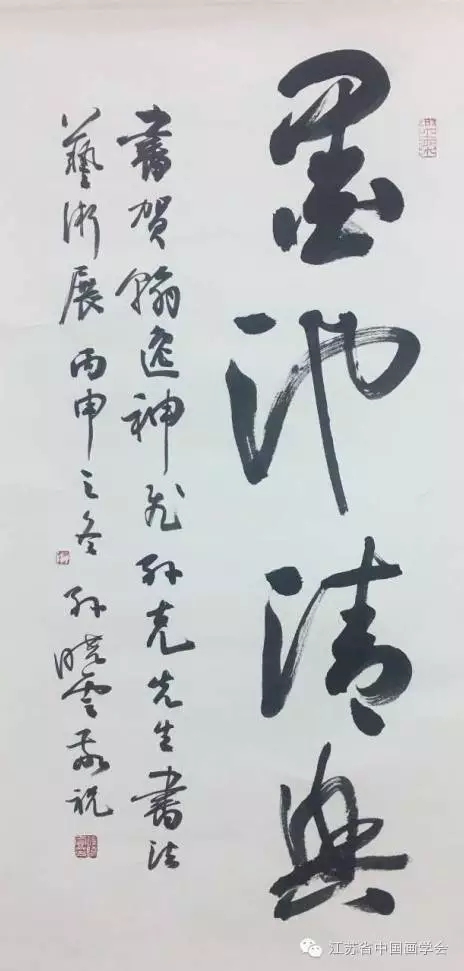 墨池清興
書賀翰逸神飛孫克先生書法
藝術展 丙申之冬 孫曉雲敬祝
江苏省中国画学会